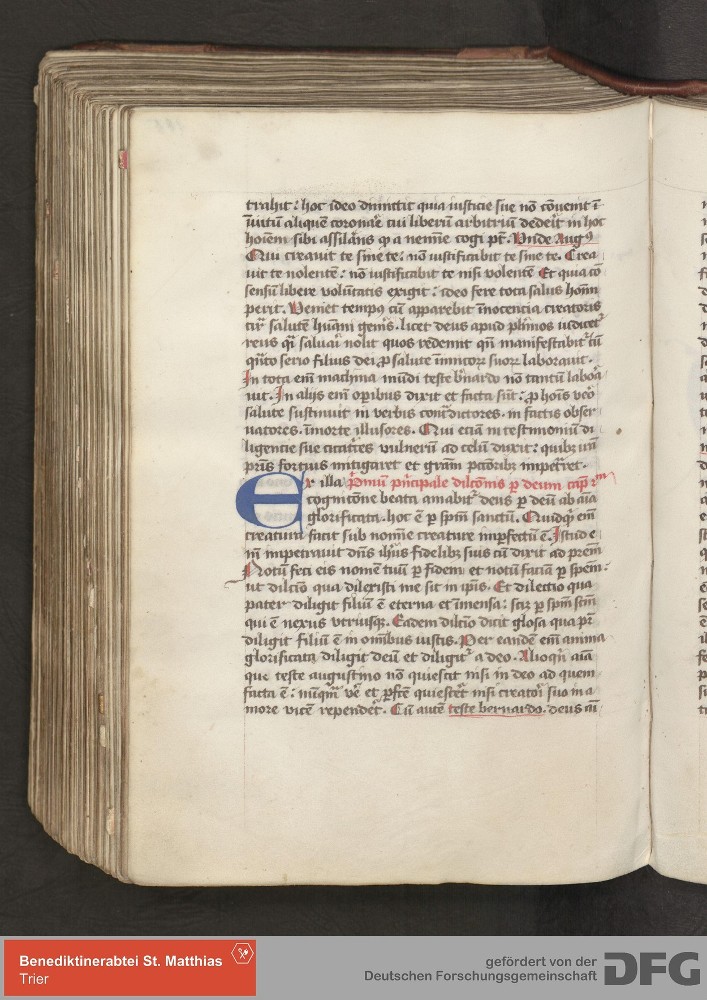 trahit: hoc ideo dimittit quia iusticie sue nō cōuenit ī
īuitū aliquē coronare cui liberū arbitriū dederit in hoc
hoīem sibi assilans a nemīe cogi pt. Unde Augꝰ
Qui creauit te sine te: nō iustificabit te sine te. Crea
uit te nolentē: nō iustificabit te nisi volentē Et quia cō
sensū libere volūtatis exigit: ideo fere tota salus hoīm
perit. Veniet tempꝰ cū apparebit īnocencia creatoris
salutē hūani genīs. licet deus apud plīmos iudicet
reus saluari nolit quos redemit manifestabit cū
serio filius dei ꝓ salute inimicoꝝ suoꝝ laborauit.
In tota em̄ machina mūdi teste bn̄ardo nō tantū labora
uit. In alijs em̄ oꝑibus dixit et facta sūt: ꝓ hoīs vero
salute sustinuit in verbis contdictores. in factis obser
uatores. īmorte illusores. Qui eciā in testimoniū di
ligencie sue cicatrices vulnerū ad celū duxit: quibꝫ
pris forcius mitigaret et grām pctōribꝫ impetret.
Ex illa Pmiū pncipale dilcōnis ꝑ deum
cognicōne beata amabit deus ꝑ deū ab aīa
glorificata. hoc ē ꝑ spm sanctū. Quidqd em̄
creatura facit sub nomīe creature imꝑfectū ē. Istud e
nī impetrauit dn̄s ihus fidelibꝫ suis cū dixit ad prem
Notū feci eis nomē tuū ꝑ fidem et notū faciā ꝑ spem:
ut dilcio qua dilexisti me sit in ipīs. Et dilectio qua
pater diligit filiū ē eterna et īmensa: scꝫ ꝑ spm scm
qui ē nexus vtriusqꝫ. Eadem dilcio dicit glosa qua pr
diligit filiū ē in omībus iustis. Per eandē em̄ anima
glorificata diligit deū et diligit a deo. Alioqn aīa
que teste augustino nō quiescit nisi in deo ad quem
facta ē: nūqm vē et ꝑfcē quiescet nisi creatori suo in a
more vicē rependet. Cū autē teste bernardo. deus
Benediktinerabtei St. Matthias
Trier
gefördert von der
Deutschen Forschungsgemeinschaft
DFG